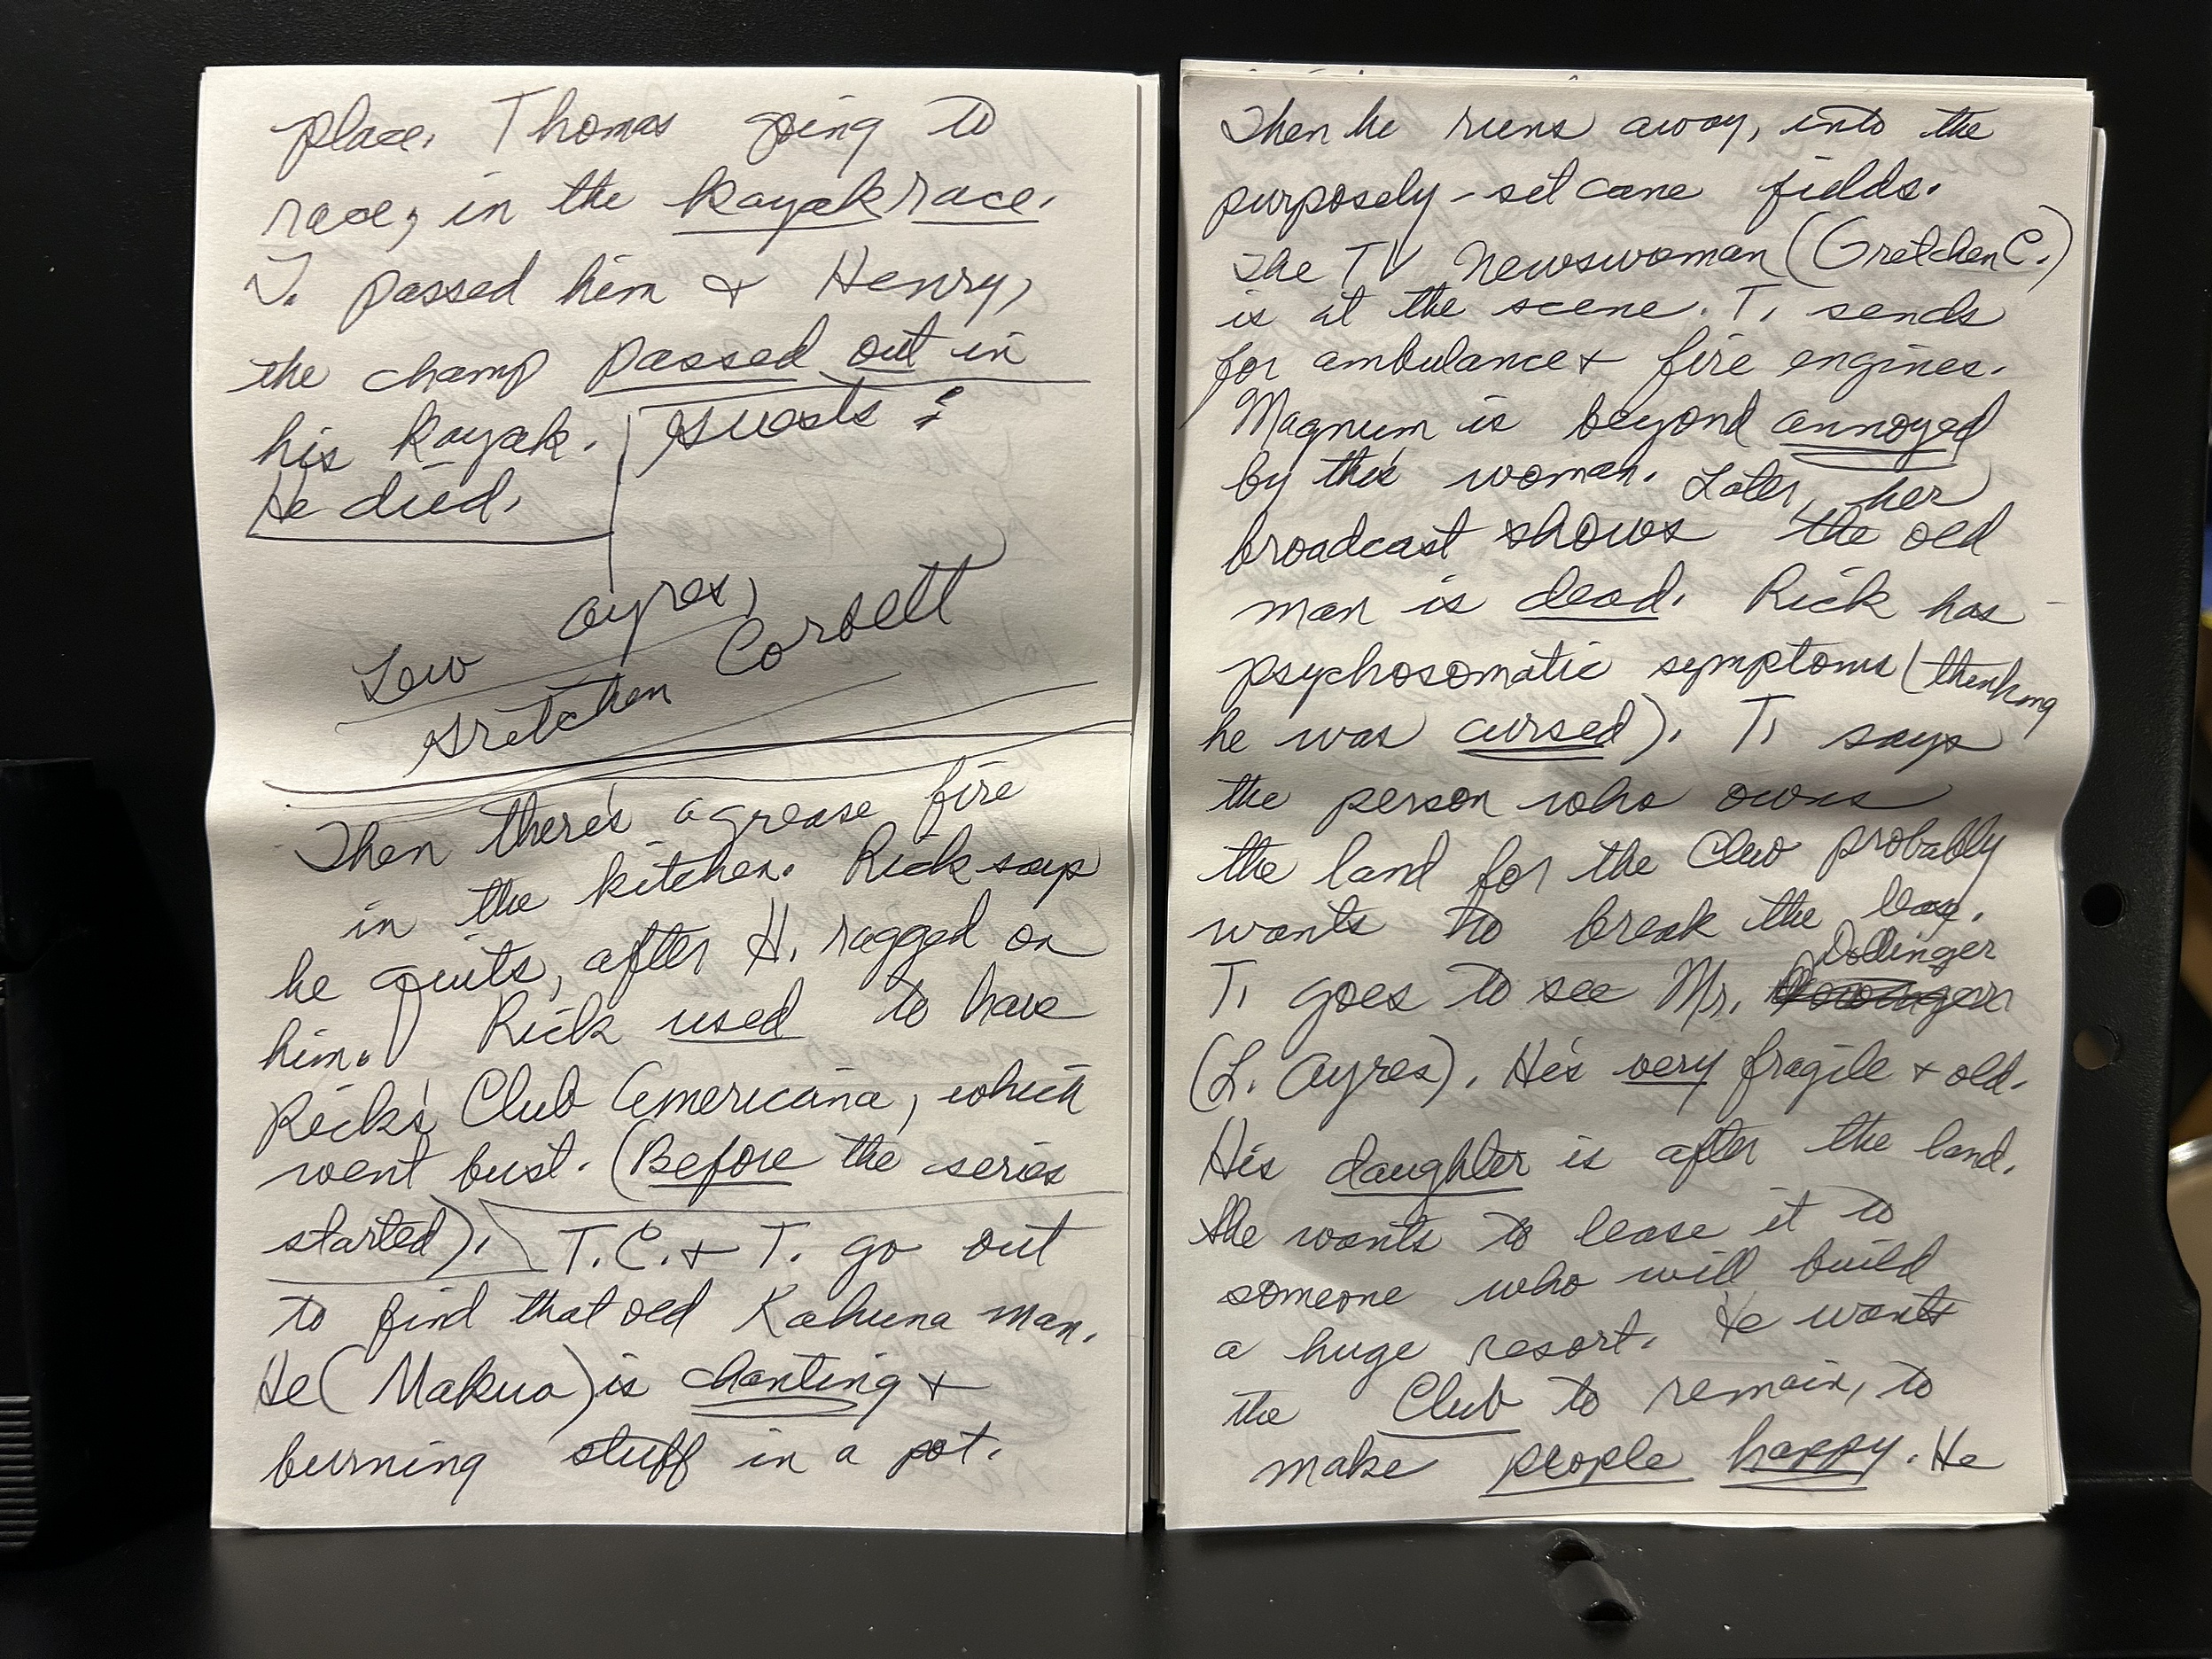 place. Thomas going to
race, in the kayak race.
T. passed him & Henry,
the champ passed out in
his kayak.
He died.
Guests:
Lew Ayres,
Gretchen Corbett
Then there's a grease fire
in the kitchen. Rick says
he quits, after H. ragged on
him. Rick used to have
Rick's Club Americana, which
went bust. (Before the series
started). T.C. & T. go out
to find that old Kahuna man.
He (Makua) is chanting &
burning stuff in a pot.
Then he runs away, into the
purposely-set cane fields.
The TV Newswoman (Gretchen C.)
is at the scene. T. sends
for ambulance & fire engines.
Magnum is beyond annoyed
by this woman. Later, her
broadcast shows the old
man is dead. Rick has
psychosomatic symptoms (thinking
he was cursed). T. says
the person who owns
the land for the Club probably
wants to break the
T. goes to see Mr. Dollinger
(L. Ayres). He's very fragile & old.
His daughter is after the land.
She wants to lease it to
someone who will build
a huge resort. He wants
the Club to remain, to
make people happy. He